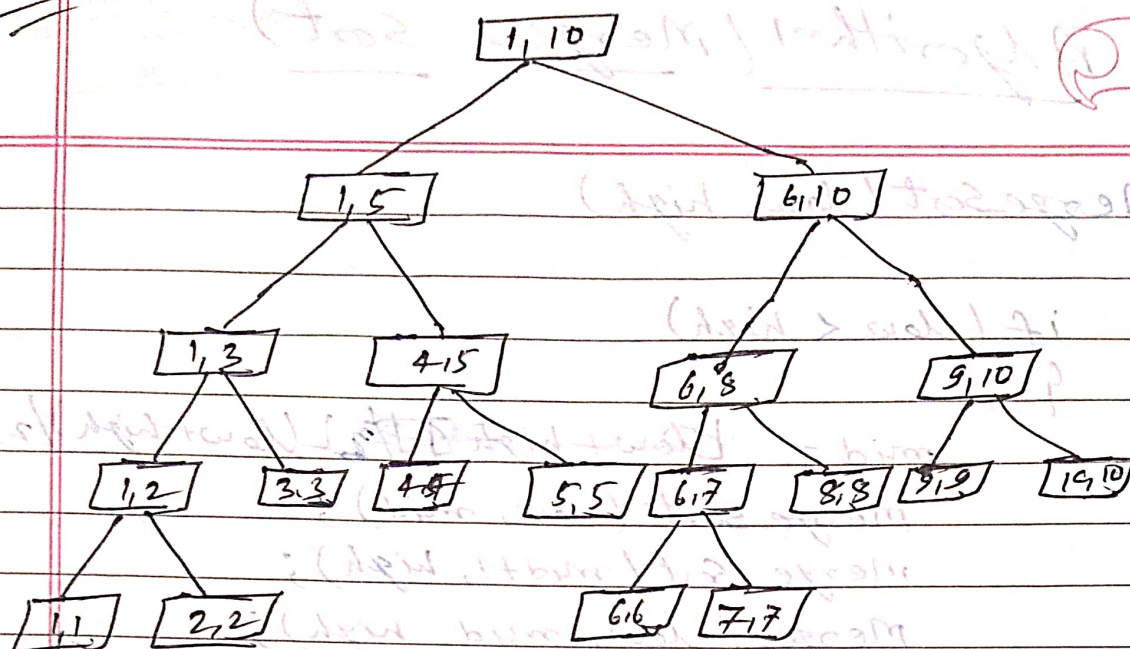 1, 10
1, 5 6, 10
1, 3 4, 5 6, 8 9, 10
1, 2 3, 3 4, 4 5, 5 6, 7 8, 8 9, 9 10, 10
1, 1 2, 2 6, 6 7, 7